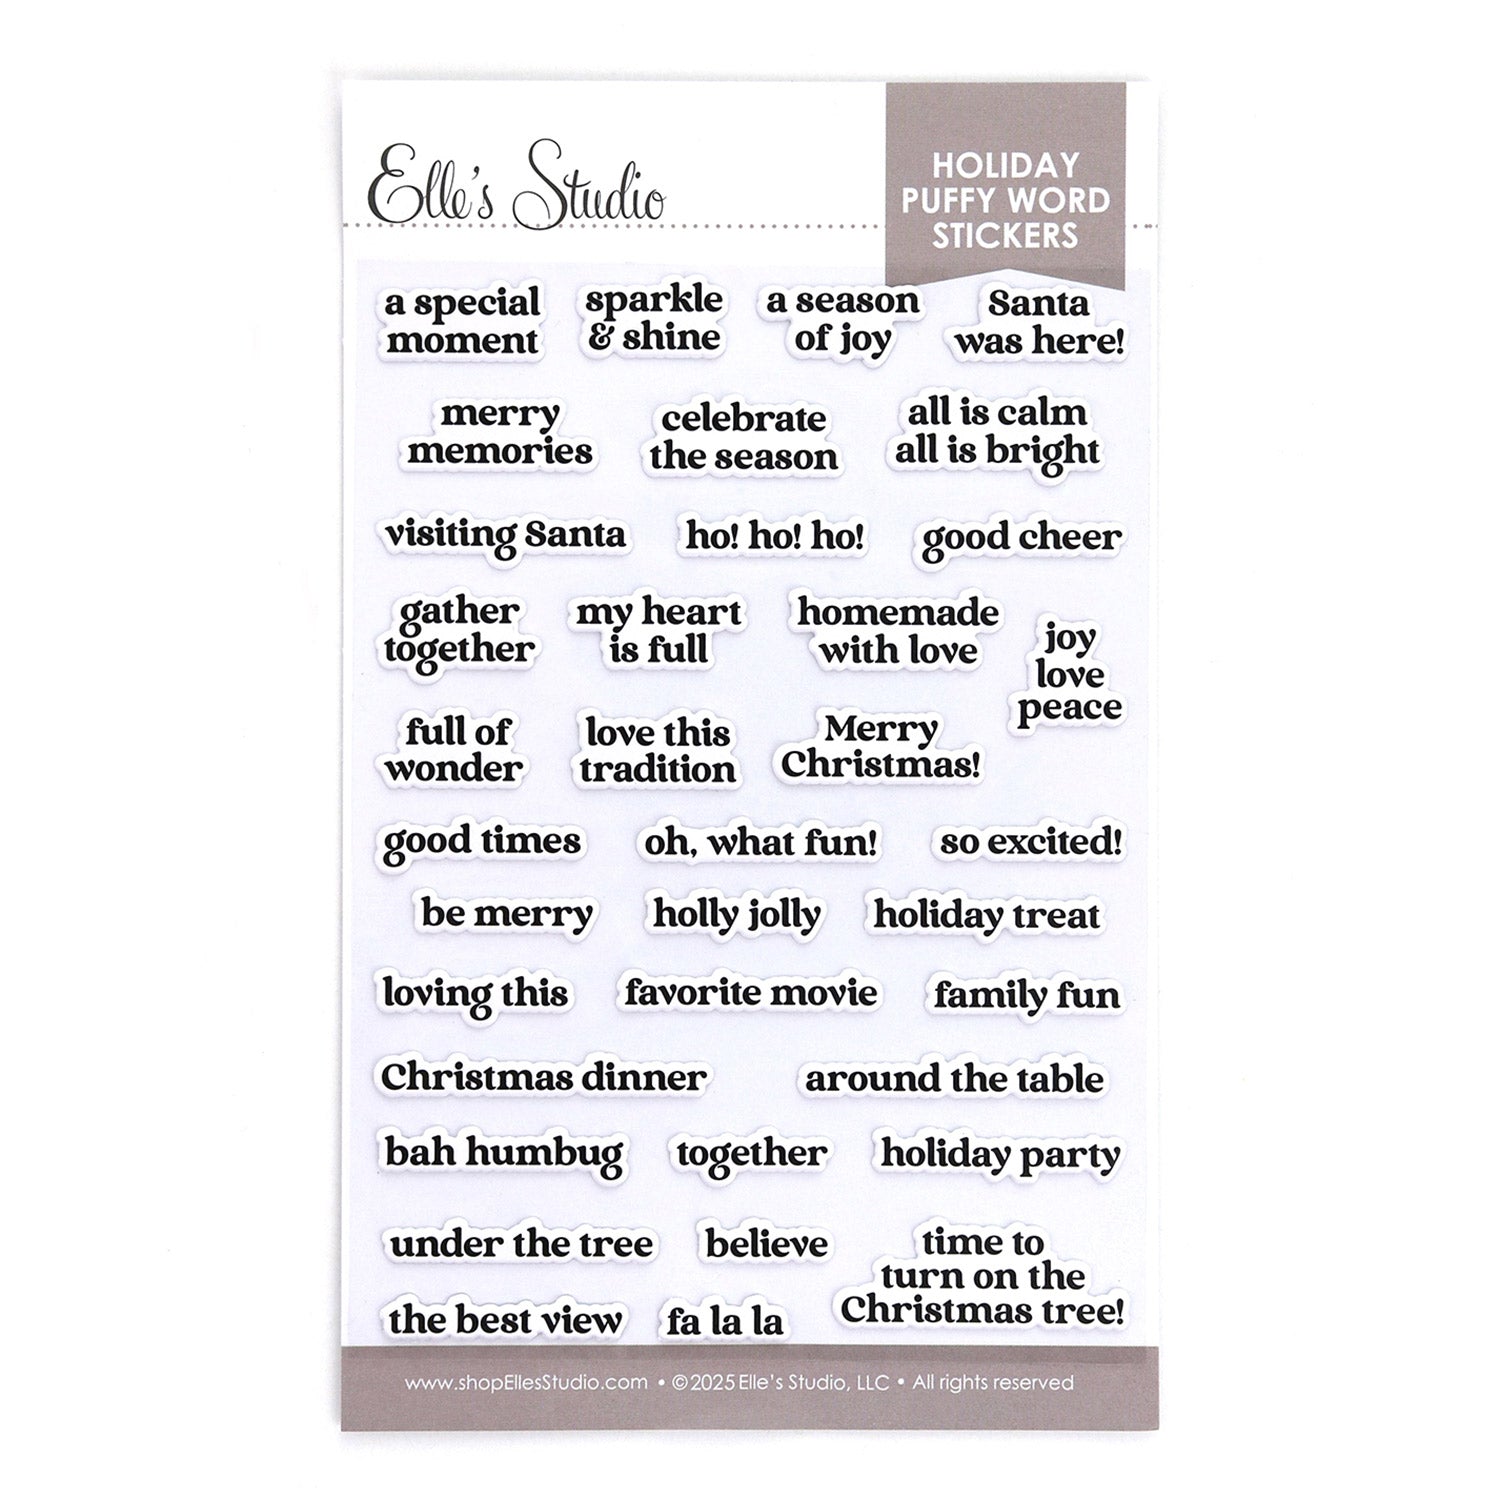 Elle's Studio
HOLIDAY
PUFFY WORD
STICKERS
a special
moment
sparkle
& shine
a season
of joy
Santa
was here!
merry
memories
celebrate
the season
all is calm
all is bright
visiting Santa
ho! ho! ho!
good cheer
gather
together
my heart
is full
homemade
with love
joy
love
peace
full of
wonder
love this
tradition
Merry
Christmas!
good times
oh, what fun!
so excited!
be merry
holly jolly
holiday treat
loving this
favorite movie
family fun
Christmas dinner
around the table
bah humbug
together
holiday party
under the tree
believe
time to
turn on the
Christmas tree!
the best view
fa la la
www.shopEllesStudio.com • ©2025 Elle's Studio, LLC • All rights reserved